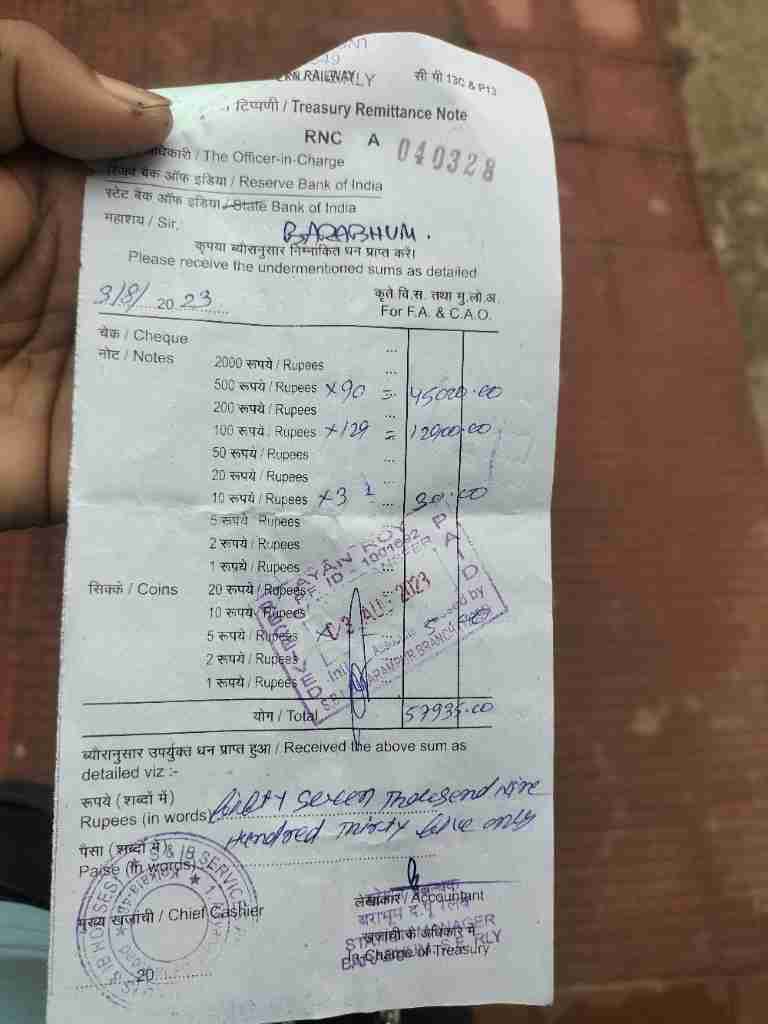 RN.RAILWAY RLY सी पी 13C & P13
टिप्पणी / Treasury Remittance Note
RNC A 040328
धिकारी / The Officer-in-Charge
रिजर्व बैंक ऑफ इडिया / Reserve Bank of India
स्टेट बैंक ऑफ इडिया / State Bank of India
महाशय / Sir,
BARABHUM.
कृपया ब्योरानुसार निम्नांकित धन प्राप्त करें।
Please receive the undermentioned sums as detailed
3/8/ 20 23 कृते वि.स. तथा मु.ले.अ.
For F.A. & C.A.O.
चेक / Cheque ...
नोट / Notes 2000 रूपये / Rupees ...
500 रूपये / Rupees ×90 = 45000.00
200 रूपये / Rupees ...
100 रूपये / Rupees ×129 = 12900.00
50 रूपये / Rupees ...
20 रूपये / Rupees ...
10 रूपये / Rupees ×3 ... 30.00
5 रूपये / Rupees
2 रूपये / Rupees
1 रूपये / Rupees
सिक्के / Coins 20 रूपये / Rupees
10 रूपये / Rupees
5 रूपये / Rupees × 5
2 रूपये / Rupees
1 रूपये / Rupees
AYAN ROY
P.F. ID - 1001692
PAID
AU 2023
RECEIVED
BRANCH
योग / Total 57935.00
ब्योरानुसार उपर्युक्त धन प्राप्त हुआ / Received the above sum as
detailed viz :-
रूपये (शब्दों में)
Rupees (in words) fifty seven thousend nine
पैसा (शब्दों में) Hundred Thirty five only
Paise (in words)
SERVICE
मुख्य खजांची / Chief Cashier
लेखाकार / Accountant
खजांची के अधिकार में
In Charge of Treasury
20